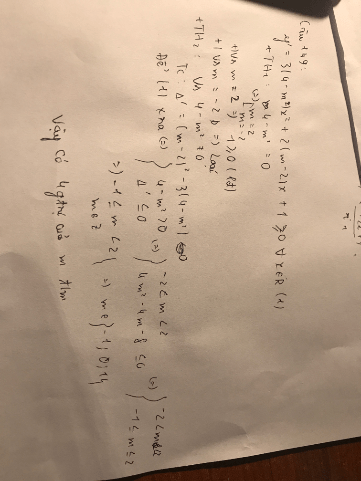 Câu 49:
y' = 3(4-m²)x² + 2(m-2)x + 1 ≥ 0 ∀x∈R (*)
+TH1: 4-m² = 0
(=) [ m=2
m=-2
+Với m = 2 =) 1 ≥ 0 (lđ)
+Với m = -2 =) Loại
+TH2: Với 4-m² ≠ 0
Tc: Δ' = (m-2)² - 3(4-m²)
Để (*) xảy ra (=) { 4-m² > 0 (=) { -2<m<2 (=) { -2<m<2
Δ' ≤ 0 4m²-4m-8 ≤ 0 -1≤m≤2
=) -1 ≤ m < 2 } =) m∈{-1;0;1}
m∈Z
Vậy có 4 giá trị của m t/m